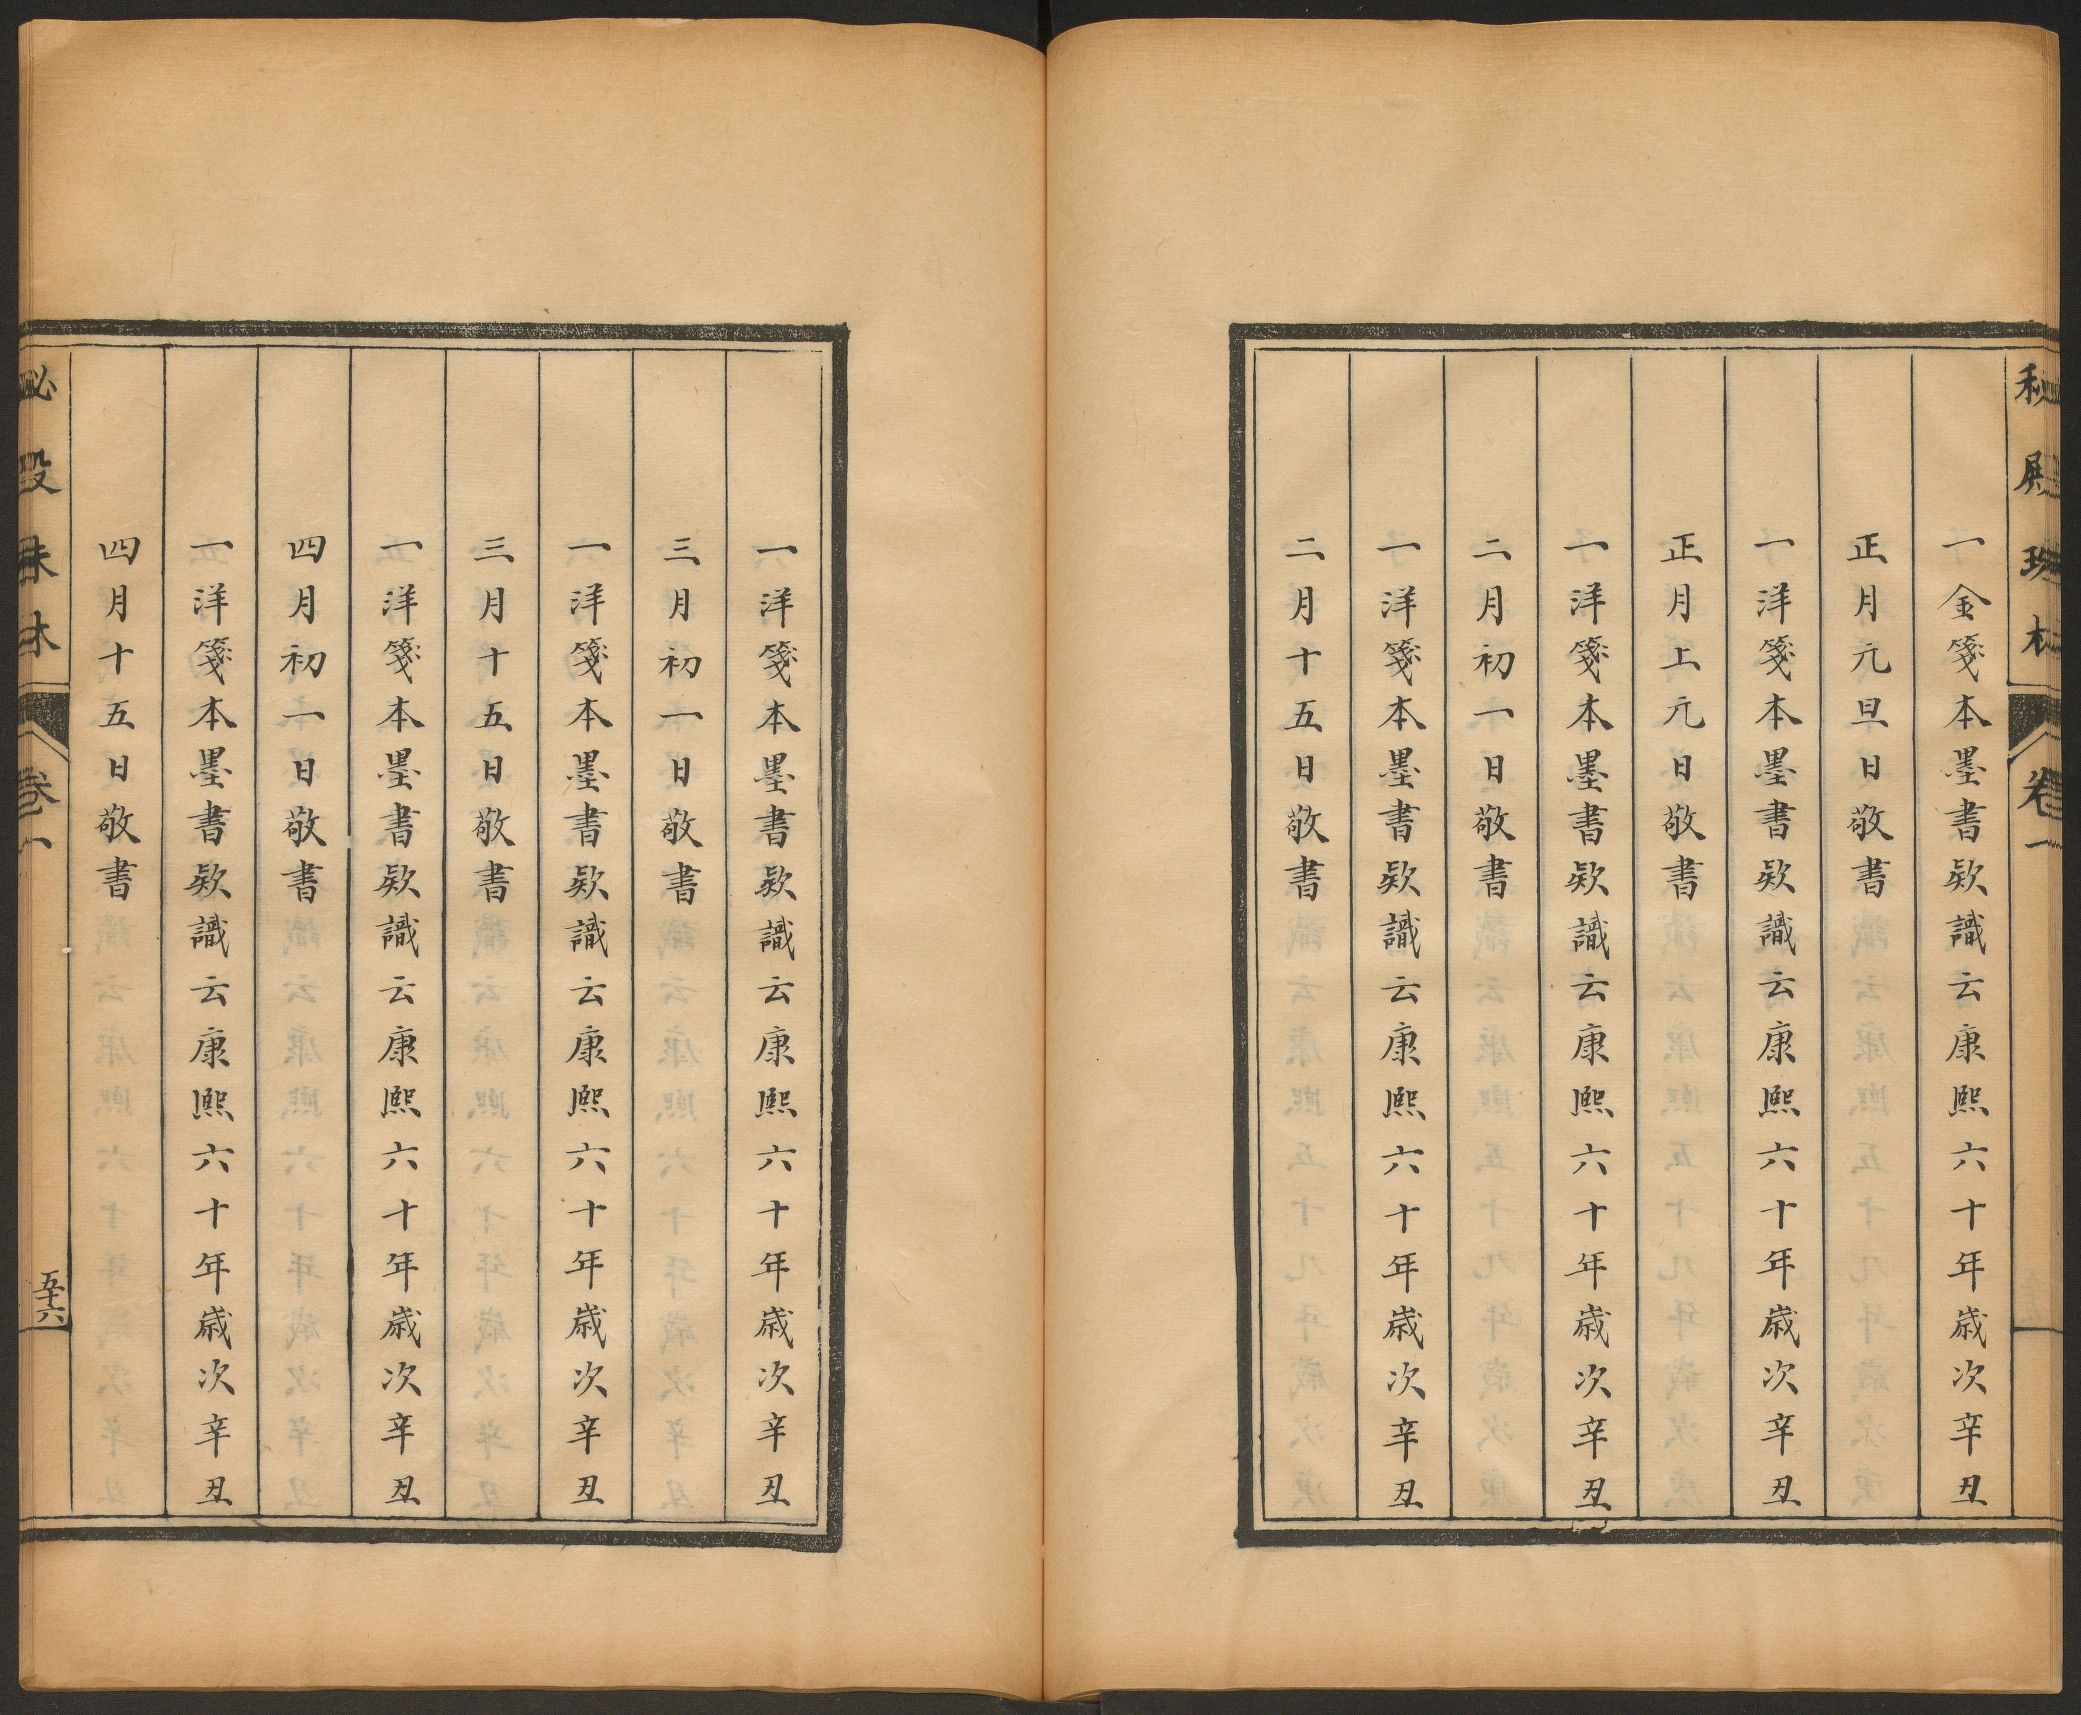 秘殿珠林
卷一
一金箋本墨書欵識云康熙六十年歲次辛丑
正月元旦日敬書
一洋箋本墨書欵識云康熙六十年歲次辛丑
正月上元日敬書
一洋箋本墨書欵識云康熙六十年歲次辛丑
二月初一日敬書
一洋箋本墨書欵識云康熙六十年歲次辛丑
二月十五日敬書
一洋箋本墨書欵識云康熙六十年歲次辛丑
三月初一日敬書
一洋箋本墨書欵識云康熙六十年歲次辛丑
三月十五日敬書
一洋箋本墨書欵識云康熙六十年歲次辛丑
四月初一日敬書
一洋箋本墨書欵識云康熙六十年歲次辛丑
四月十五日敬書
秘殿珠林
卷一
五十六